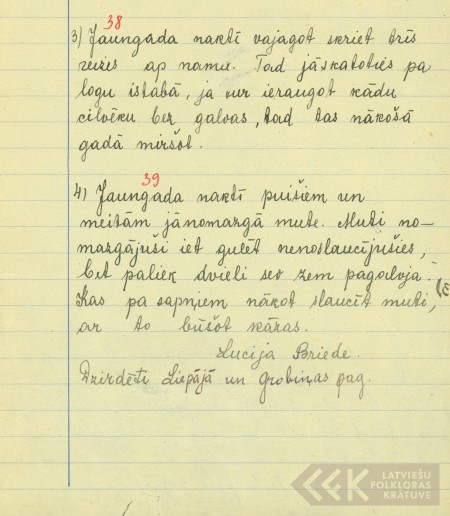 38
3) Jaungada naktī vajagot skriet trīs
reizes ap namu. Tad jāskatoties pa
logu istabā, ja kur ieraugot kādu
cilvēku bez galvas, tad tas nākošā
gadā miršot.
39
4) Jaungada naktī puišiem un
meitām jānomazgā mute. Muti no-
mazgājuši iet gulēt nenoslaucījušies,
bet paliek dvieli sev zem pagalvja.
Kas pa sapņiem nākot slaucīt muti,
ar to būšot kāzas.
Lucija Briede.
Dzirdēti Liepājā un Grobiņas pag.
LATVIEŠU
FOLKLORAS
KRĀTUVE